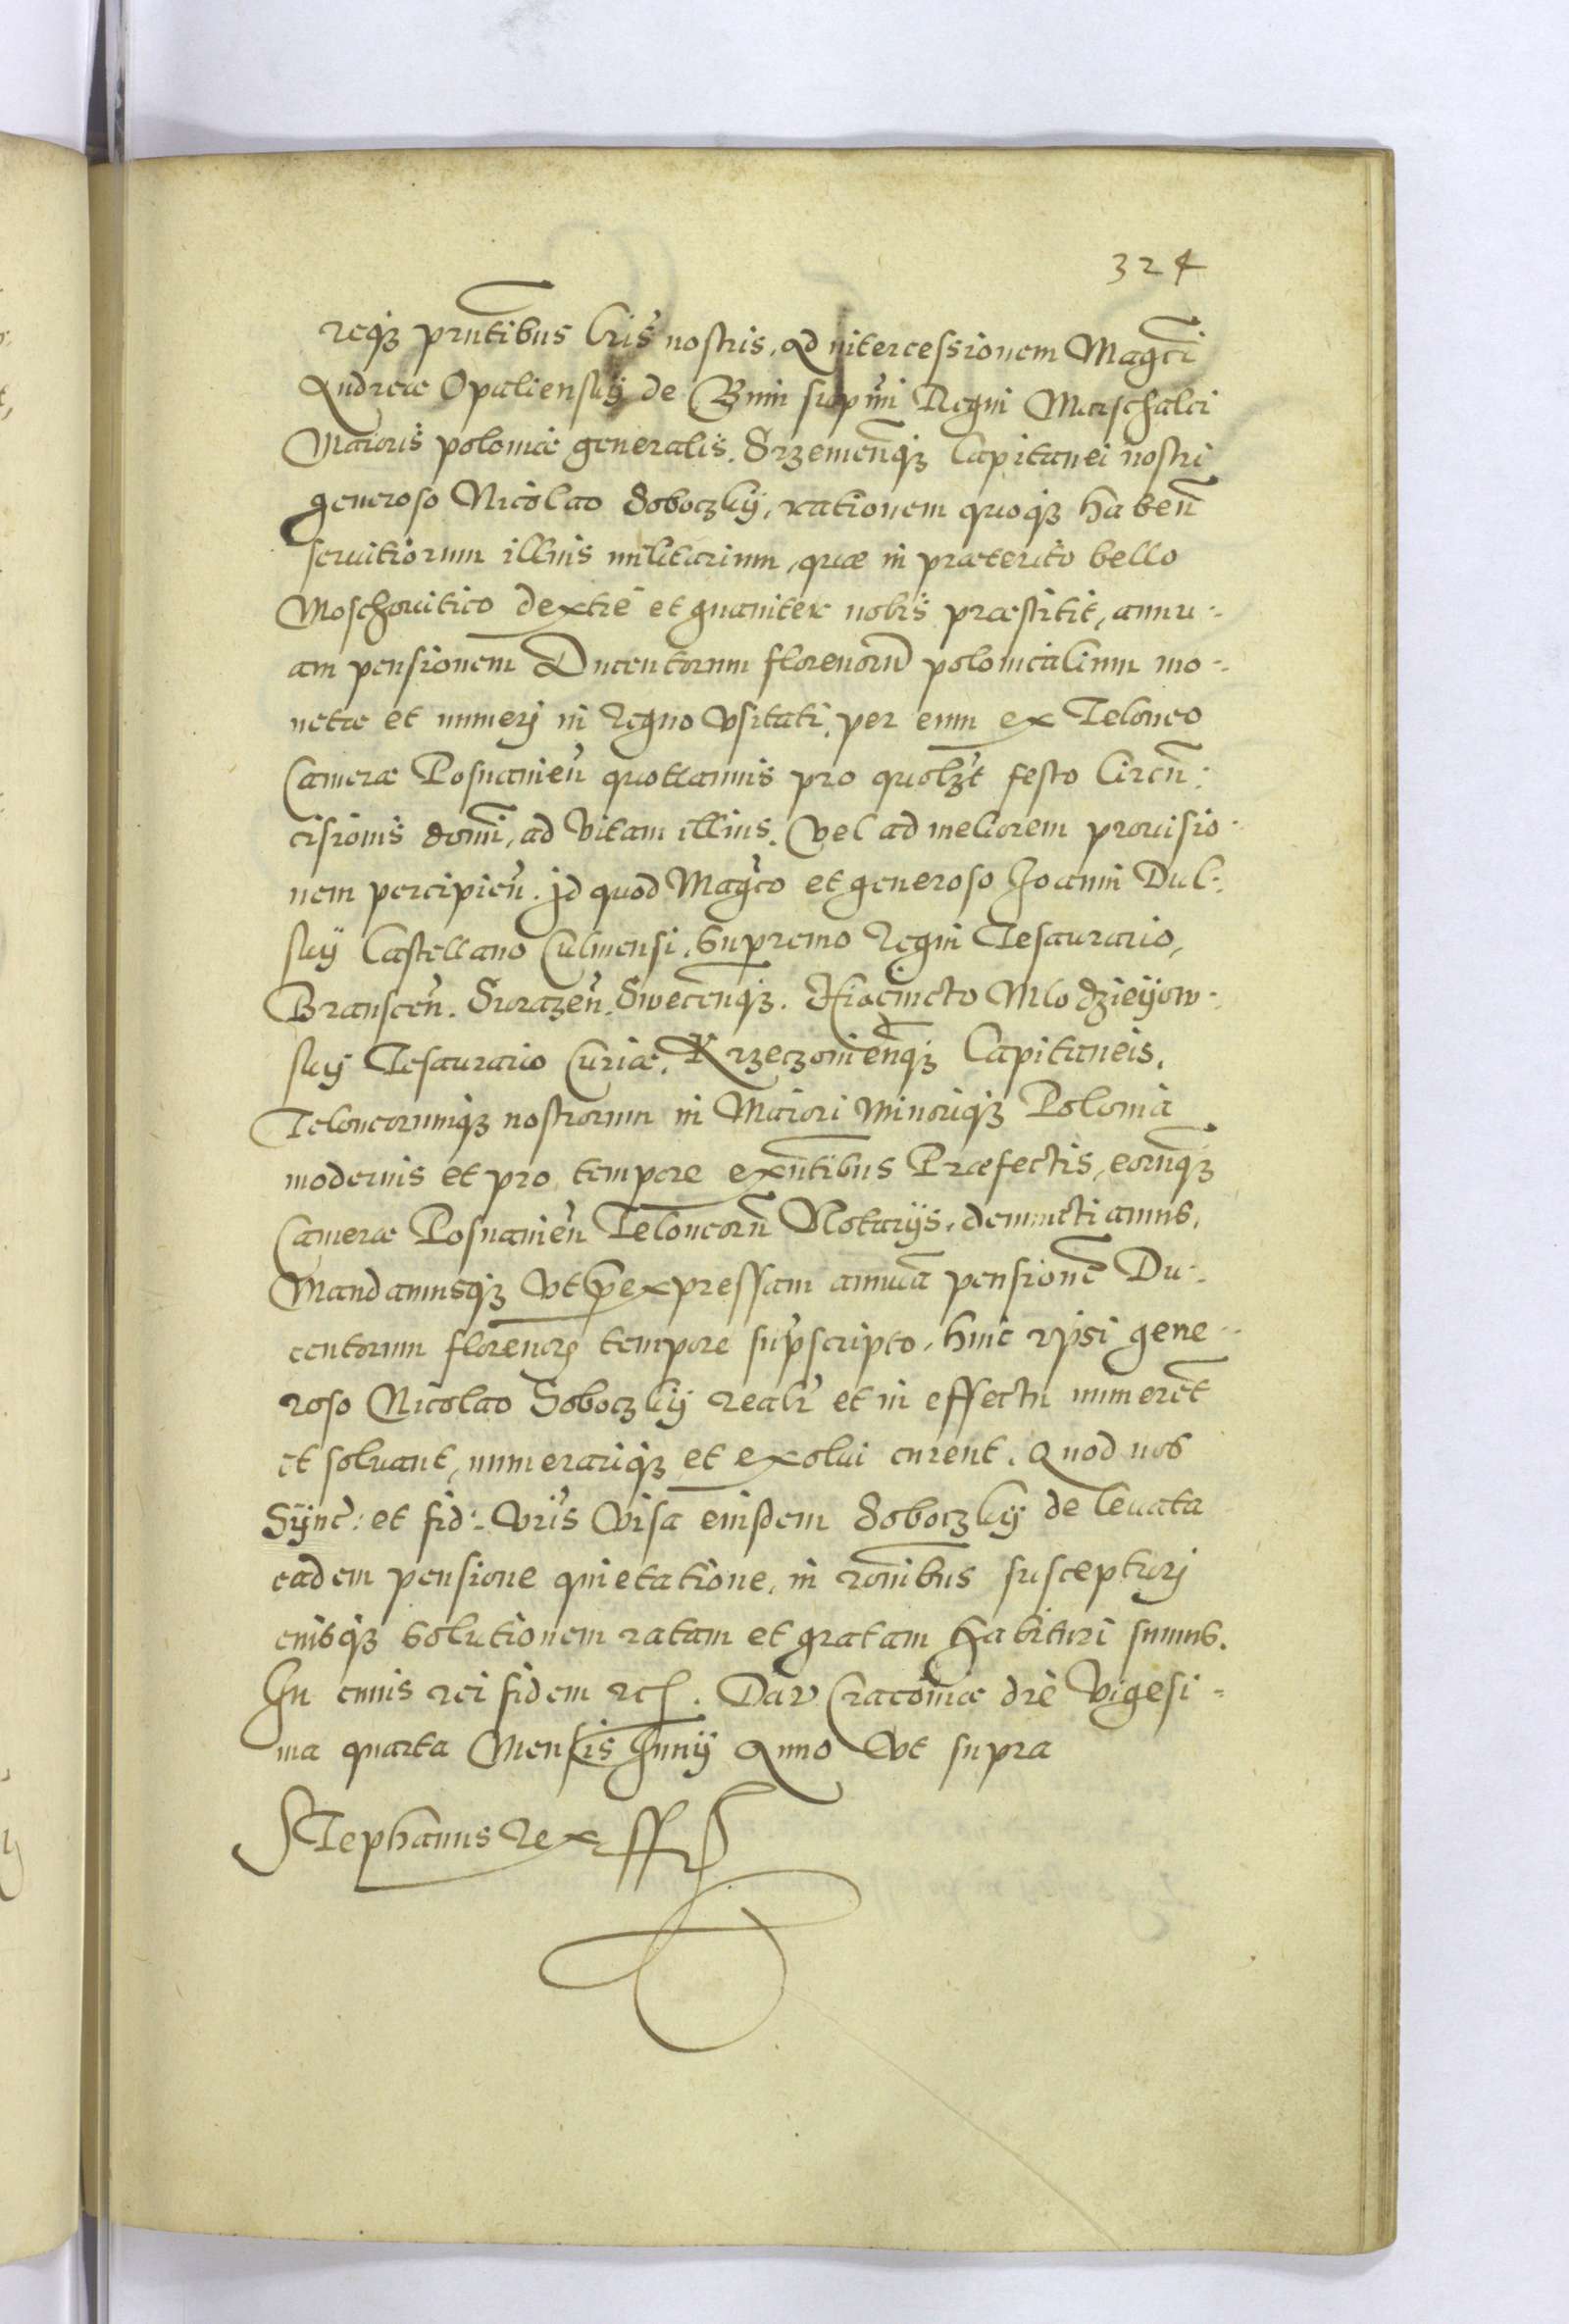 324
reqz prntibus lris nostris, ad intercessionem Magci
Andreae Opalienskÿ de Bnin supmi Regni Marschalci
Maioris poloniae generalis. Srzemenqz Capitanei nostri
generoso Nicolao Soboczkÿ, rationem quoqz haben
servitiorum illius militarium, quae in praeterito bello
Moschovitico dextre et gnaviter nobis praestitit, annu-
am pensionem Ducentorum florenoru polonicalium mo-
netae et numerj in Regno usitati, per eum ex Teloneo
Camerae Posnanien quottannis pro quolzt festo Circu-
cisionis domi, ad vitam illius. Vel ad meliorem provisio-
nem percipien. Id quod Magco et generoso Joanni Dul-
skÿ Castellano Culmensi, Supremo Regni Tesaurario,
Branscen. Surazen. Swecenqz. Hiacincto Mlodzieÿow-
skÿ Tesaurario Curiae, Krzeczonienqz Capitaneis,
Teloneorumqz nostrorum in Maiori Minoriqz Polonia
modernis et pro tempore exntibus Praefectis, eorumqz
Camerae Posnanien Teloneoru Notarÿs, demmctiamus,
Mandamusqz Ut pexpressam annua pensione Du-
centorum florenor tempore supscripto, huic ipsi gene-
roso Nicolao Soboczkÿ realr et in effectu numeret
et solvant, numerariqz et exolvi curent. Quod nos
Sÿnc: et fid: vris visa eiusdem Soboczkÿ de levata
eadem pensione quietatione, in ronibus suscepturj
eiusqz solutionem ratam et gratam habituri sumus.
In cuius rei fidem rc. Dat Cracoviae die Vigesi-
ma quarta Mensis Junÿ Anno Ut supra
Stephanus Rex ss